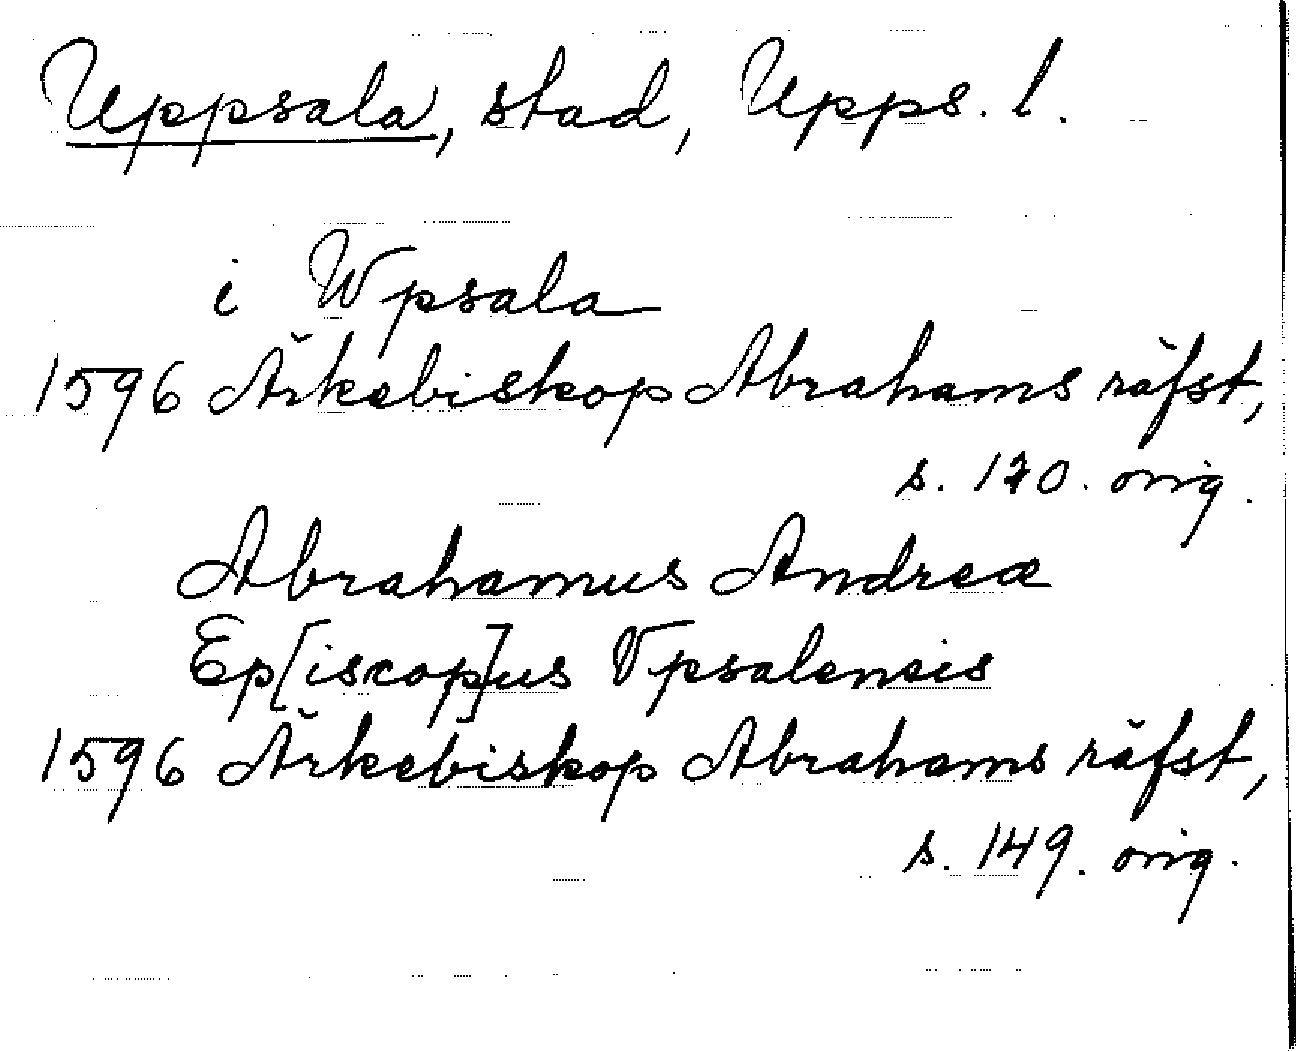 Uppsala, stad, Upps. l.
i Wpsala
1596 Ärkebiskop Abrahams räfst,
s. 120. orig.
Abrahamus Andreæ
Ep[iscop]us Vpsalensis
1596 Ärkebiskop Abrahams räfst,
s. 149. orig.